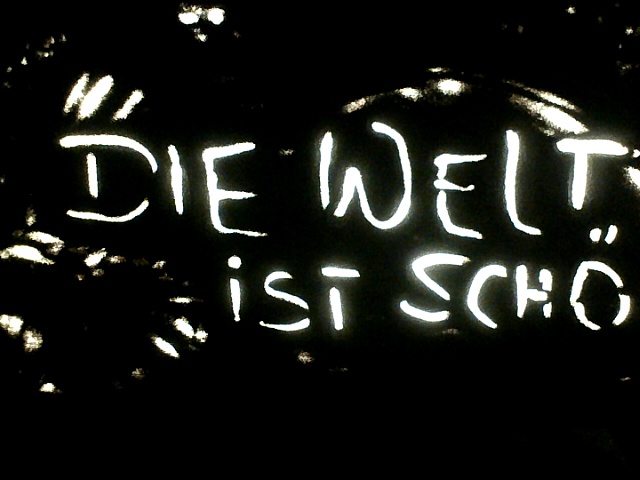 DIE WELT
iST SCHÖ